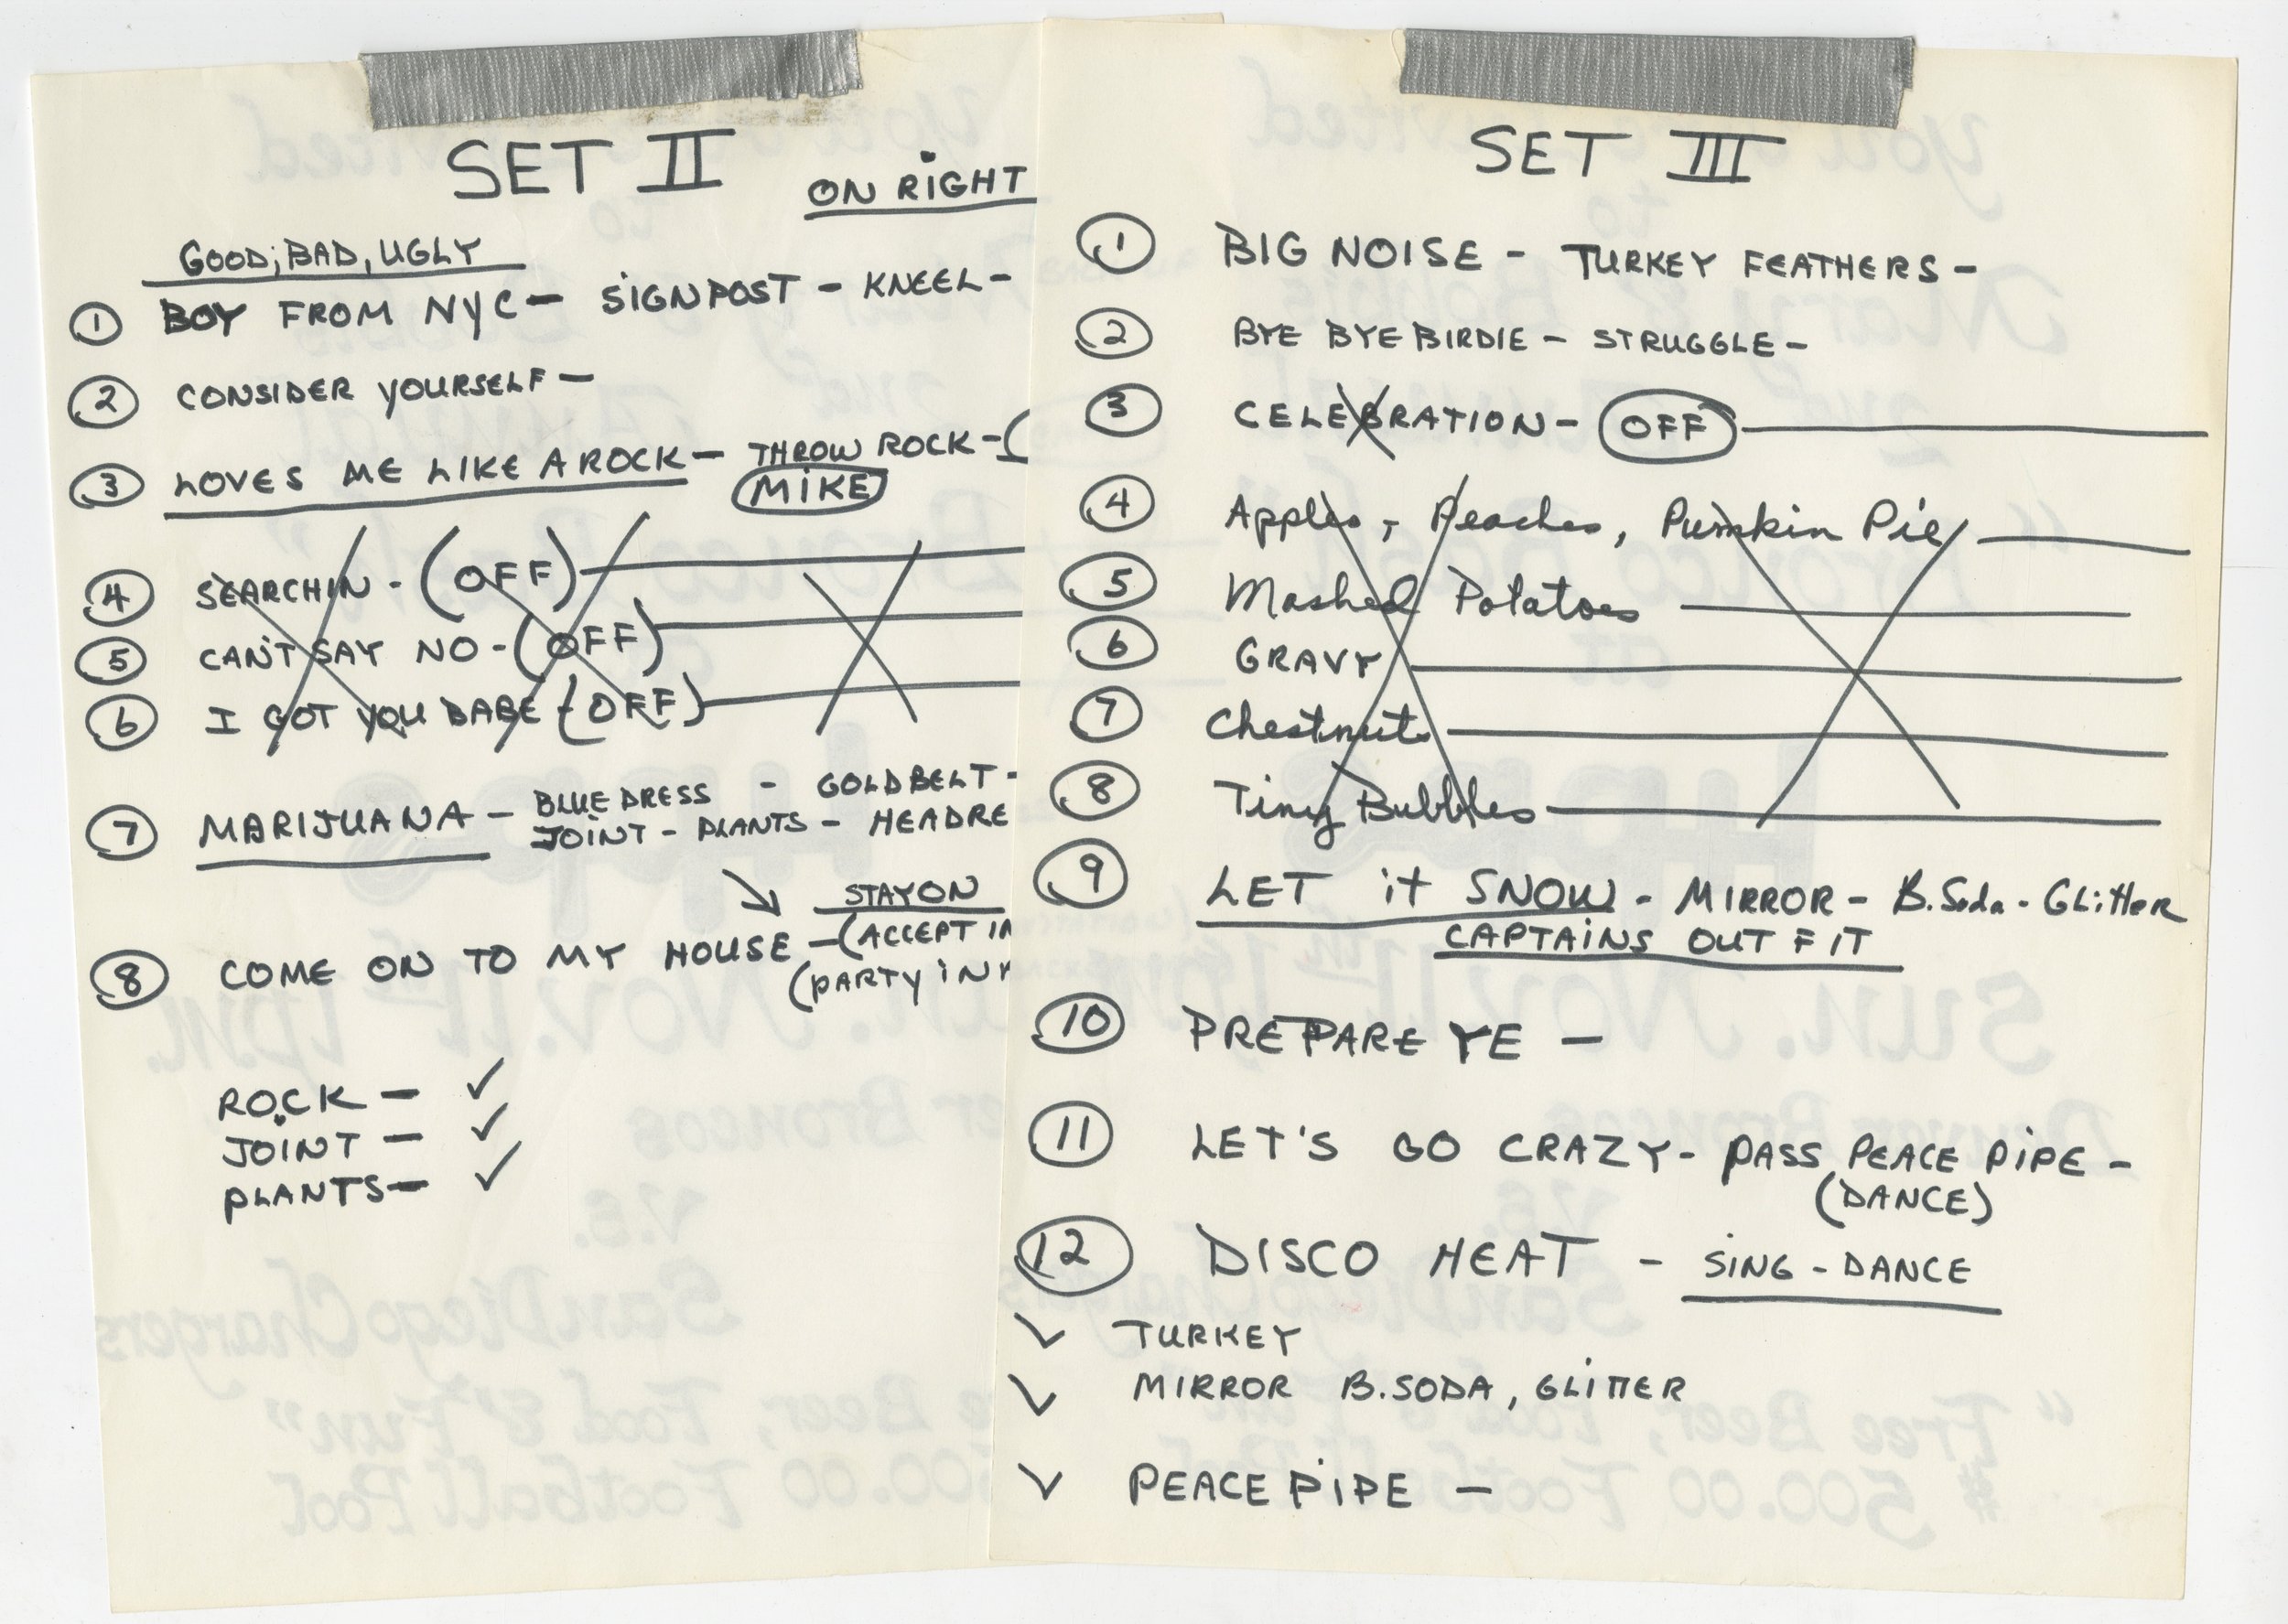 SET II
ON RIGHT
GOOD, BAD, UGLY
1 BOY FROM NYC - SIGNPOST - KNEEL -
2 CONSIDER YOURSELF -
3 LOVES ME LIKE A ROCK - THROW ROCK - (
MIKE
4 SEARCHIN - (OFF)
5 CAN'T SAY NO - (OFF)
6 I GOT YOU BABE - (OFF)
7 MARIJUANA - BLUE DRESS - GOLD BELT -
JOINT - PLANTS - HEADRE
STAY ON
8 COME ON TO MY HOUSE - (ACCEPT IN
(PARTY IN
ROCK - ✓
JOINT - ✓
PLANTS - ✓
SET III
1 BIG NOISE - TURKEY FEATHERS -
2 BYE BYE BIRDIE - STRUGGLE -
3 CELEBRATION - OFF
4 Apples, Peaches, Pumkin Pie
5 Mashed Potatoes
6 GRAVY
7 Chestnuts
8 Tiny Bubbles
9 LET iT SNOW - MIRROR - B. Soda - GLitteR
CAPTAINS OUTFIT
10 PREPARE YE -
11 LET'S GO CRAZY - PASS PEACE PIPE -
(DANCE)
12 DISCO HEAT - SING - DANCE
✓ TURKEY
✓ MIRROR B. SODA, GLITTER
✓ PEACE PIPE -